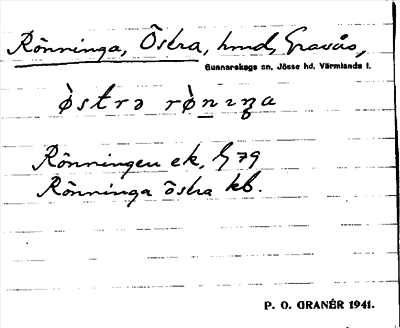 Rönninga, Östra, hmd, Gravås,
Gunnarskogs sn, Jösse hd, Värmlands l.
ø̀strə rø̀nıŋa
Rönningen ek, G 79
Rönninga östra kb.
P. O. GRANÉR 1941.